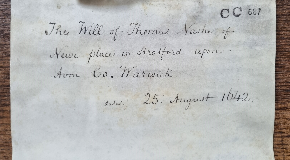 CC 667
The Will of Thomas Nash of
New place in Stratford upon
Avon Co. Warwick
25. August 1642.